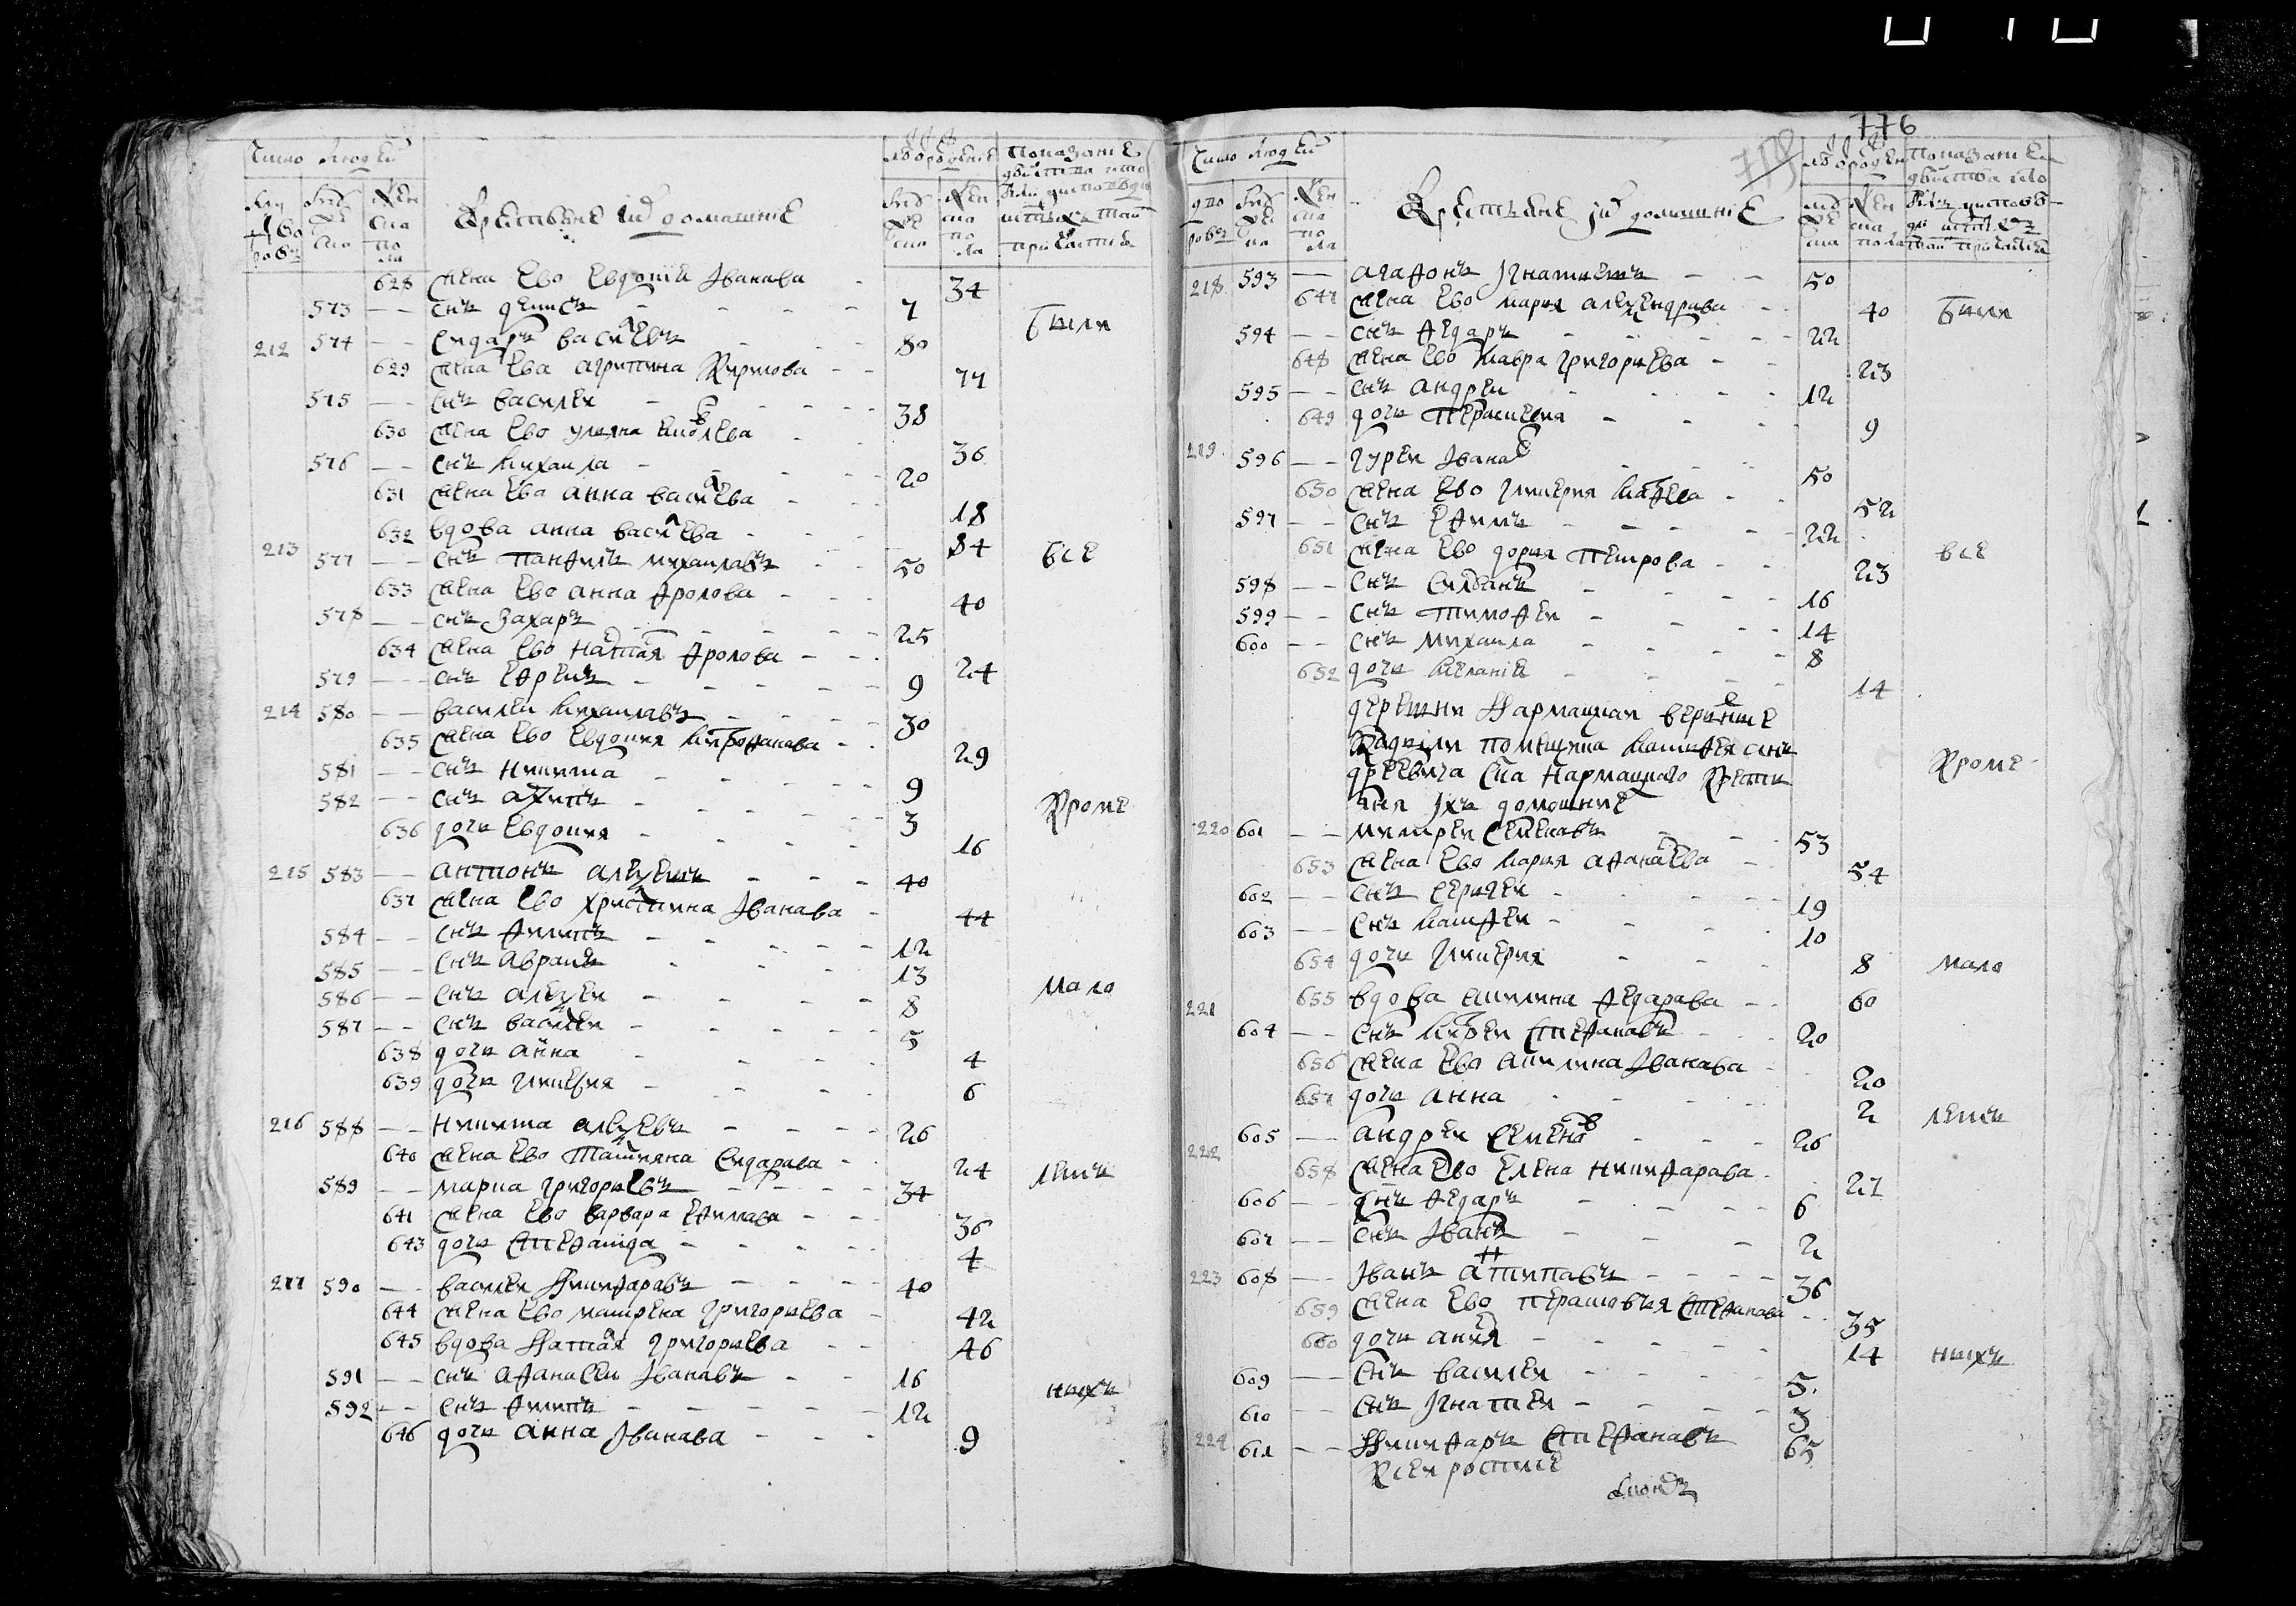 Число людей
лѣта от рождения
Показание
Крестьяне и их домашние
628 жена ево Евдокия Iванава 34
573 — — снъ Денисъ 7
Были
212 574 — — Сидаръ Васильевъ 80
629 жена ева Агрипина Кирилова 77
575 — — снъ Василеи 38
630 жена ево Ульяна Яковлева 36
576 — — снъ Михаила 20
631 жена ева Анна Васильева 18
632 вдова Анна Васильева 84
все
213 577 — — снъ Панфилъ Михаилавъ 50
633 жена ево Анна Фролова 40
578 — — снъ Захаръ 25
634 жена ево Наталя Фролова 24
579 — — снъ Ефремъ 9
214 580 — — Василеи Михаилавъ 30
635 жена ево Евдокия Митрофанава 29
581 — — снъ Никита 9
582 — — снъ Архипъ 3
Кроме
636 дочи Евдокия 16
215 583 — — Антонъ Алексеивъ 40
637 жена ево Христина Iванава 44
584 — — снъ Филипъ 12
585 — — снъ Аврамъ 13
мало
586 — — снъ Алексеи 8
587 — — снъ Василеи 5
638 дочи Анна 4
639 дочи Гликерия 6
216 588 — — Никита Алексеевъ 26
640 жена ево Татияна Сидарава 24
летъ
589 — — Марка Григорьевъ 34
641 жена ево Варвара Ефимава 36
643 дочи Степанида 4
217 590 — — Василеи Никифаравъ 40
644 жена ево Матрена Григорьева 42
645 вдова Наталя Григорьева 46
591 — — снъ Афанасеи Iванавъ 16
нихъ
592 — — снъ Филипъ 12
646 дочи Анна Iванава 9
776
Число людей
лѣта от рождения
Показание
Крестьяне их домашние
218 593 — — Агафонъ Iгнатиевъ 50
647 жена ево Мария Александрава 40
Были
594 — — снъ Федаръ 22
648 жена ево Мавра Григорьева 23
595 — — снъ Андреи 12
649 дочи Парасковия 9
219 596 — — Гуреи Iванав 50
650 жена ево Гликерия Матфеева 52
597 — — снъ Ефимъ 22
651 жена ево Дария Петрова 23
все
598 — — снъ Силванъ 16
599 — — снъ Тимофеи 14
600 — — снъ Михаила 8
652 дочи Мелания 14
деревни Нармацкая
помещика Матфея Ан
дреевича сна Нармацкого крести
яня iхъ домошние
Кроме
220 601 — — Митреи Семенавъ 53
653 жена ево Мария Афанасева 54
602 — — снъ Сергеи 19
603 — — снъ Матфеи 10
654 дочи Гликерия 8
мало
221 655 вдова Акилина Федарава 60
604 — — снъ Митреи Степанавъ 20
656 жена ево Акилина Iванава 20
657 дочи Анна 2
летъ
222 605 — — Андреи Семенав 26
658 жена ево Елена Никифарава 27
606 — — снъ Федаръ 6
607 — — снъ Iванъ 2
223 608 — — Iванъ Антипавъ 36
659 жена ево Парасковия Степанава 35
660 дочи Анна 14
нихъ
609 — — снъ Василеи 5
610 — — снъ Iгнатеи 3
224 611 — — Никифаръ Степанавъ 65
К сеи росписе